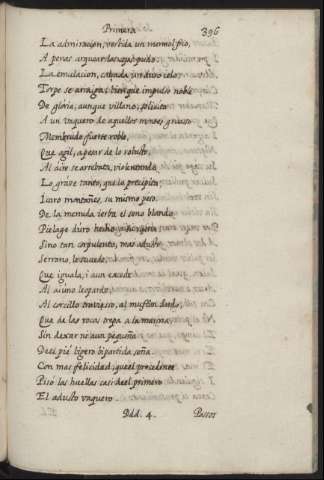 Primera 396
La admiracion, vestida un marmol frio,
A penas arquear las cejas pudo:
La emulacion, calçada un duro ielo,
Torpe se arraiga: bien que impulso noble
De gloria, aunque villano, solicita
A un vaquero de aquellos montes gruesso,
Membrudo, fuerte roble,
Que agil, a pesar de lo robusto,
Al aire se arrebata, violentando
Lo graue tanto, que lo precipita
Icaro montañes, su mismo peso,
De la menuda ierba el seno blando
Pielago duro hecho a su ruina.
Sino tan corpulento, mas adusto
Serrano, le sucede,
Que iguala, i aun excede
Al aiuno leopardo,
Al corcillo trauiesso, al muflon sardo,
Que de las rocas trepa a la marina,
Sin dexar ni aun pequeña
Del pie ligero bipartida seña.
Con mas felicidad, que el precedente
Pisó las huellas casi del primero
El adusto vaquero.
Ddd. 4.
Passos